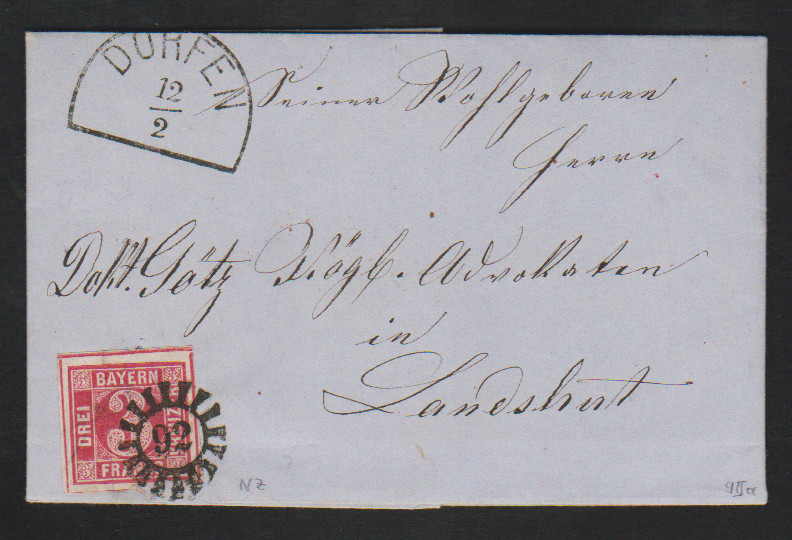 DORFEN
12
2
Seiner Wohlgeboren
Herrn
Dokt. Götz Kögl. Advokaten
in
Landshut
BAYERN
DREI
3
92
NZ
9IIa